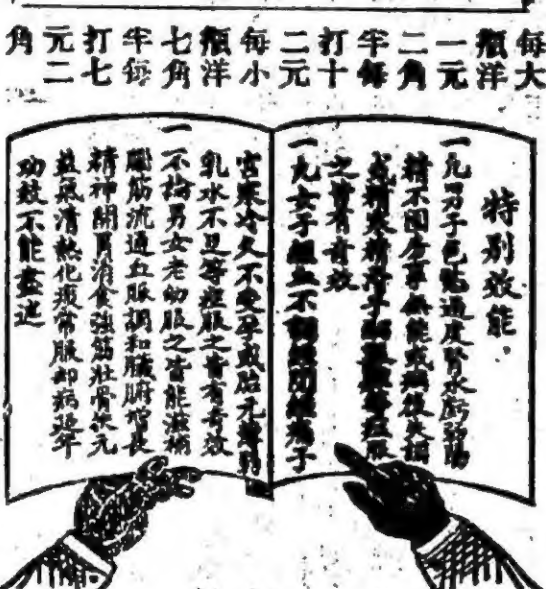 每大
瓶洋
一元
二角
半每
打十
二元
每小
瓶洋
七角
半每
打七
元二
角
特別效能
一凡男子色慾過度腎水虧弱陽
精不固房事無能或病後失調
或精寒精滑等症服
之皆有奇效
一凡女子經血不調經閉經痛子
宮寒冷久不受孕或胎元
乳水不足等症服之皆有奇效
一不論男女老幼服之皆能滋補
腦筋流通血脈調和臟腑增長
精神開胃消食強筋壯骨扶元
益氣清熱化痰常服却病延年
功效不能盡述